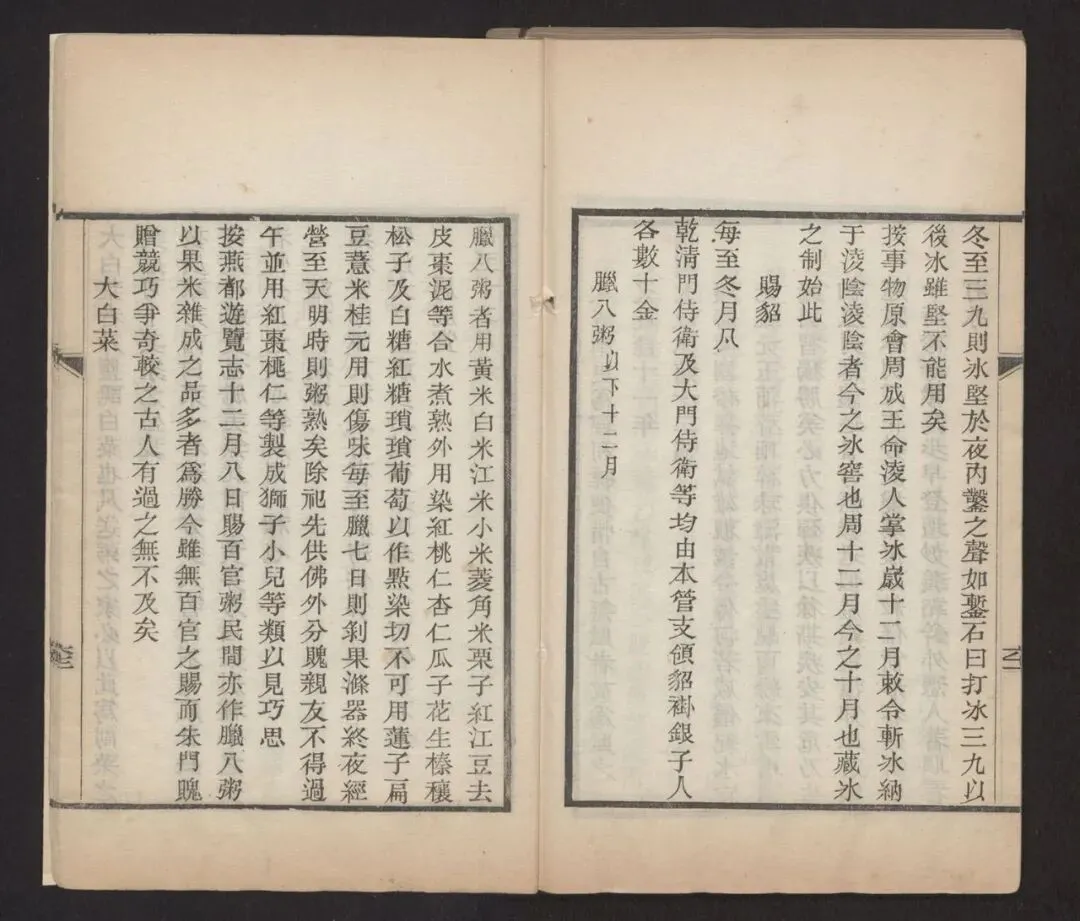 冬至三九則冰堅於夜內鑿之聲如鏨石曰打冰三九以
後冰雖堅不能用矣
按事物原會周成王命淩人掌冰嵗十二月敕令斬冰納
于淩陰淩陰者今之冰窖也周十二月今之十月也藏冰
之制始此
賜貂
每至冬月凡
乾清門侍衛及大門侍衛等均由本管支領貂褂銀子人
各數十金
臘八粥以下十二月
臘八粥者用黃米白米江米小米菱角米栗子紅江豆去
皮棗泥等合水煮熟外用染紅桃仁杏仁瓜子花生榛穰
松子及白糖紅糖瑣瑣葡萄以作點染切不可用蓮子扁
豆薏米桂元用則傷味每至臘七日則剝果滌器終夜經
營至天明時則粥熟矣除祀先供佛外分餽親友不得過
午並用紅棗桃仁等製成獅子小兒等類以見巧思
按燕都遊覽志十二月八日賜百官粥民間亦作臘八粥
以果米雜成之品多者為勝今雖無百官之賜而朱門餽
贈競巧爭奇較之古人有過之無不及矣
大白菜